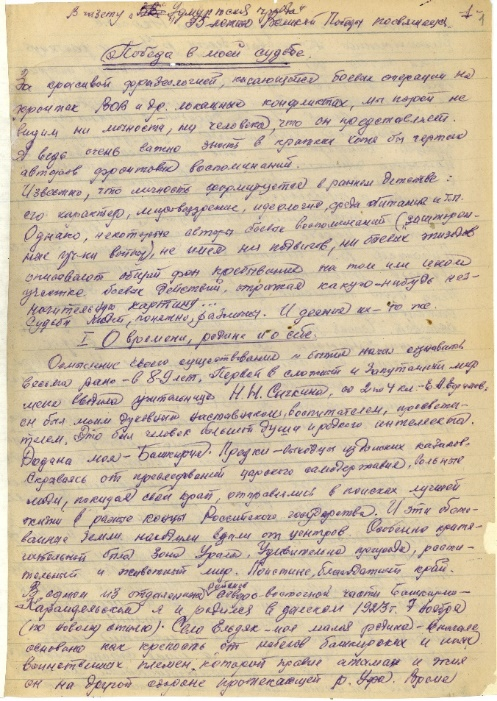 В газету "Удмуртская правда"
95-летию Великой Победы посвящается.
1
Победа в моей судьбе.
За красивой фразеологией, касающейся боевых операций на
фронтах ВОВ и др. локальных конфликтах, мы порой не
видим ни личности, ни человека, что он представляет.
А ведь очень важно знать в кратких хотя бы чертах
авторов фронтовых воспоминаний.
Известно, что личность формируется в раннем детстве:
его характер, мировоззрение, идеология, среда питания и т.п.
Однако, некоторые авторы боевых воспоминаний
войны, не имея ни подвигов, ни боевых эпизодов
описывают общий фон пребывания на том или ином
участке боевых действий, отражая какую-нибудь нез-
начительную картину...
Судьбы людей, понятно, разные. И деяния их - то же.
I О времени, родине и о себе.
Осмысление своего существования и бытия начал сознавать
весьма рано - в 8-9 лет. Первой в сложный и запутанный мир
меня вводила учительница Н.Н. Сычкина, со 2 по 4 кл. -
он был моим духовным наставником, воспитателем, просвети-
телем. Это был человек большой души и редкого интеллекта.
Родина моя - Башкирия. Предки - выходцы из Донских казаков.
Скрываясь от преследований царского самодержавия, вольные
люди, покидая свой край, отправлялись в поисках лучшей
жизни в разные концы Российского государства. И эти обето-
ванные земли находили вдали от центров. Особенно притя-
гательной была зона Урала. Удивительна природа, расти-
тельный и животный мир. Поистине, благодатный край.
В одном из отдаленных районов северо-восточной части Башкирии -
Караидельском я и родился в далеком 1923 г. 7 ноября
(по новому стилю). Село Ельдяк - моя малая родина - вначале
основано как крепость от набегов башкирских и иных
воинственных племен, которой правил атаман и жил
он на другой стороне протекающей р. Уфа. Время